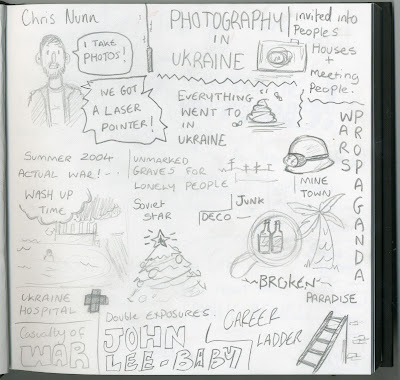 Chris Nunn
I TAKE
PHOTOS!
WE GOT
A LASER
POINTER!
PHOTOGRAPHY
IN
UKRAINE
invited into
Peoples
Houses
+
Meeting
People.
EVERYTHING
WENT TO
IN
UKRAINE
WARS
PROPAGANDA
SUMMER 2004
ACTUAL WAR!
WASH UP
TIME
UNMARKED
GRAVES FOR
LONELY PEOPLE
MINE
TOWN
Soviet
STAR
JUNK
DECO
BROKEN
PARADISE
UKRAINE
HOSPITAL
Casualty OF
WAR
Double EXPOSURES.
JOHN
LEE-BABY
CAREER
LADDER